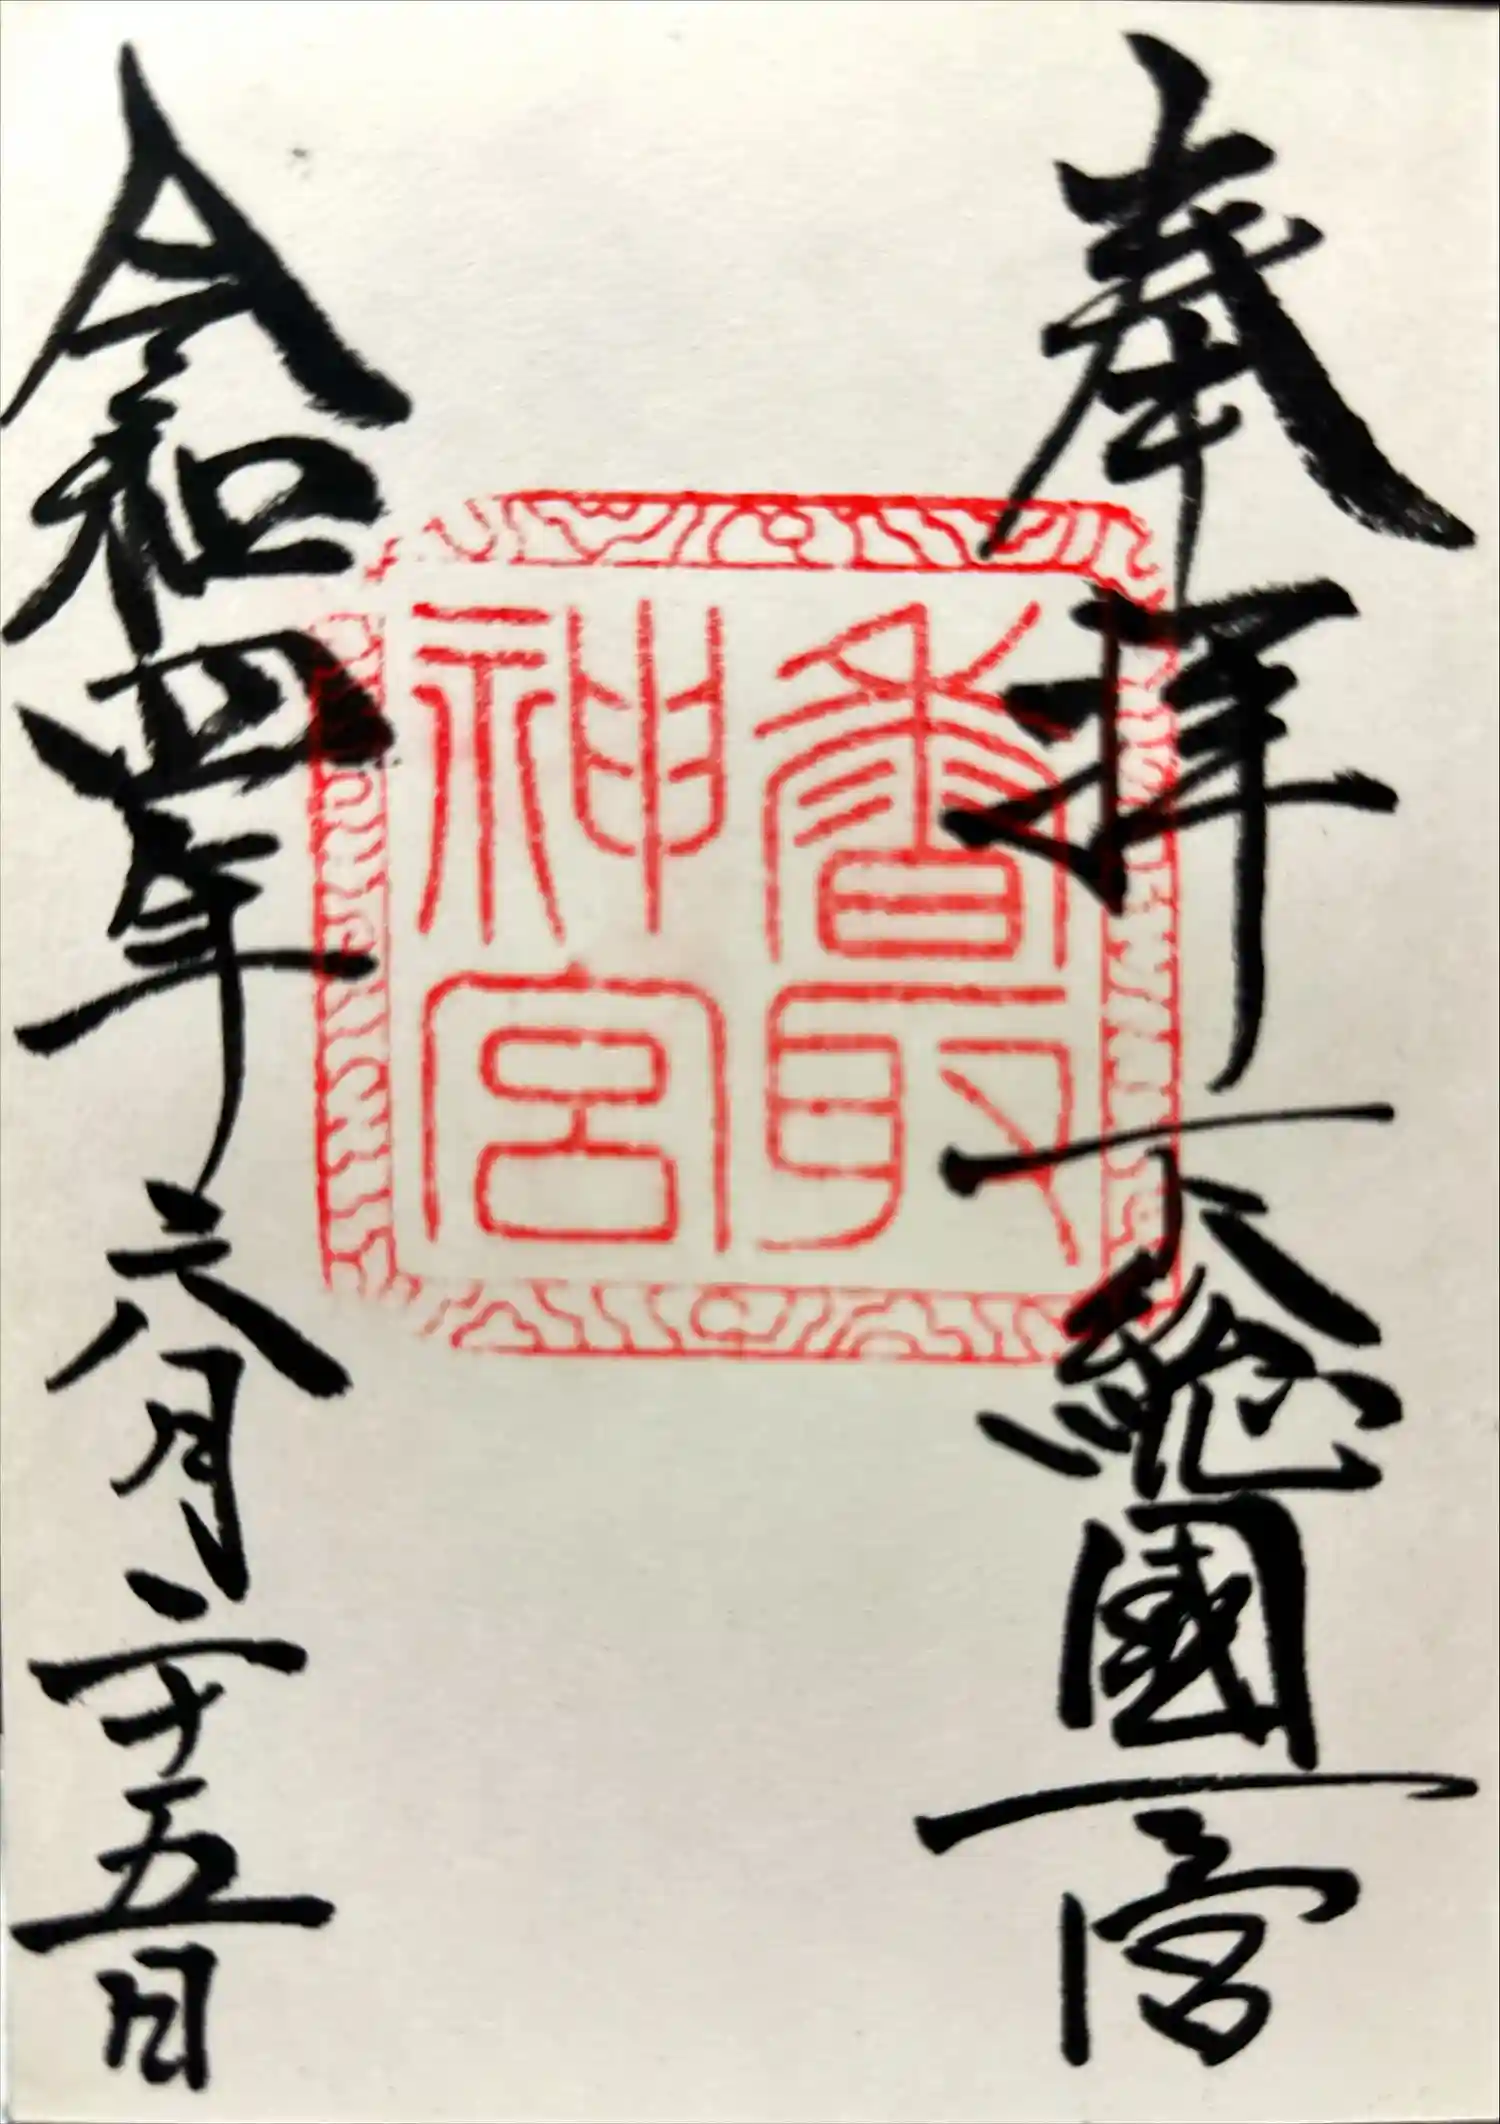 奉拝 下總國一宮
香取
神宮
令和四年六月二十五日